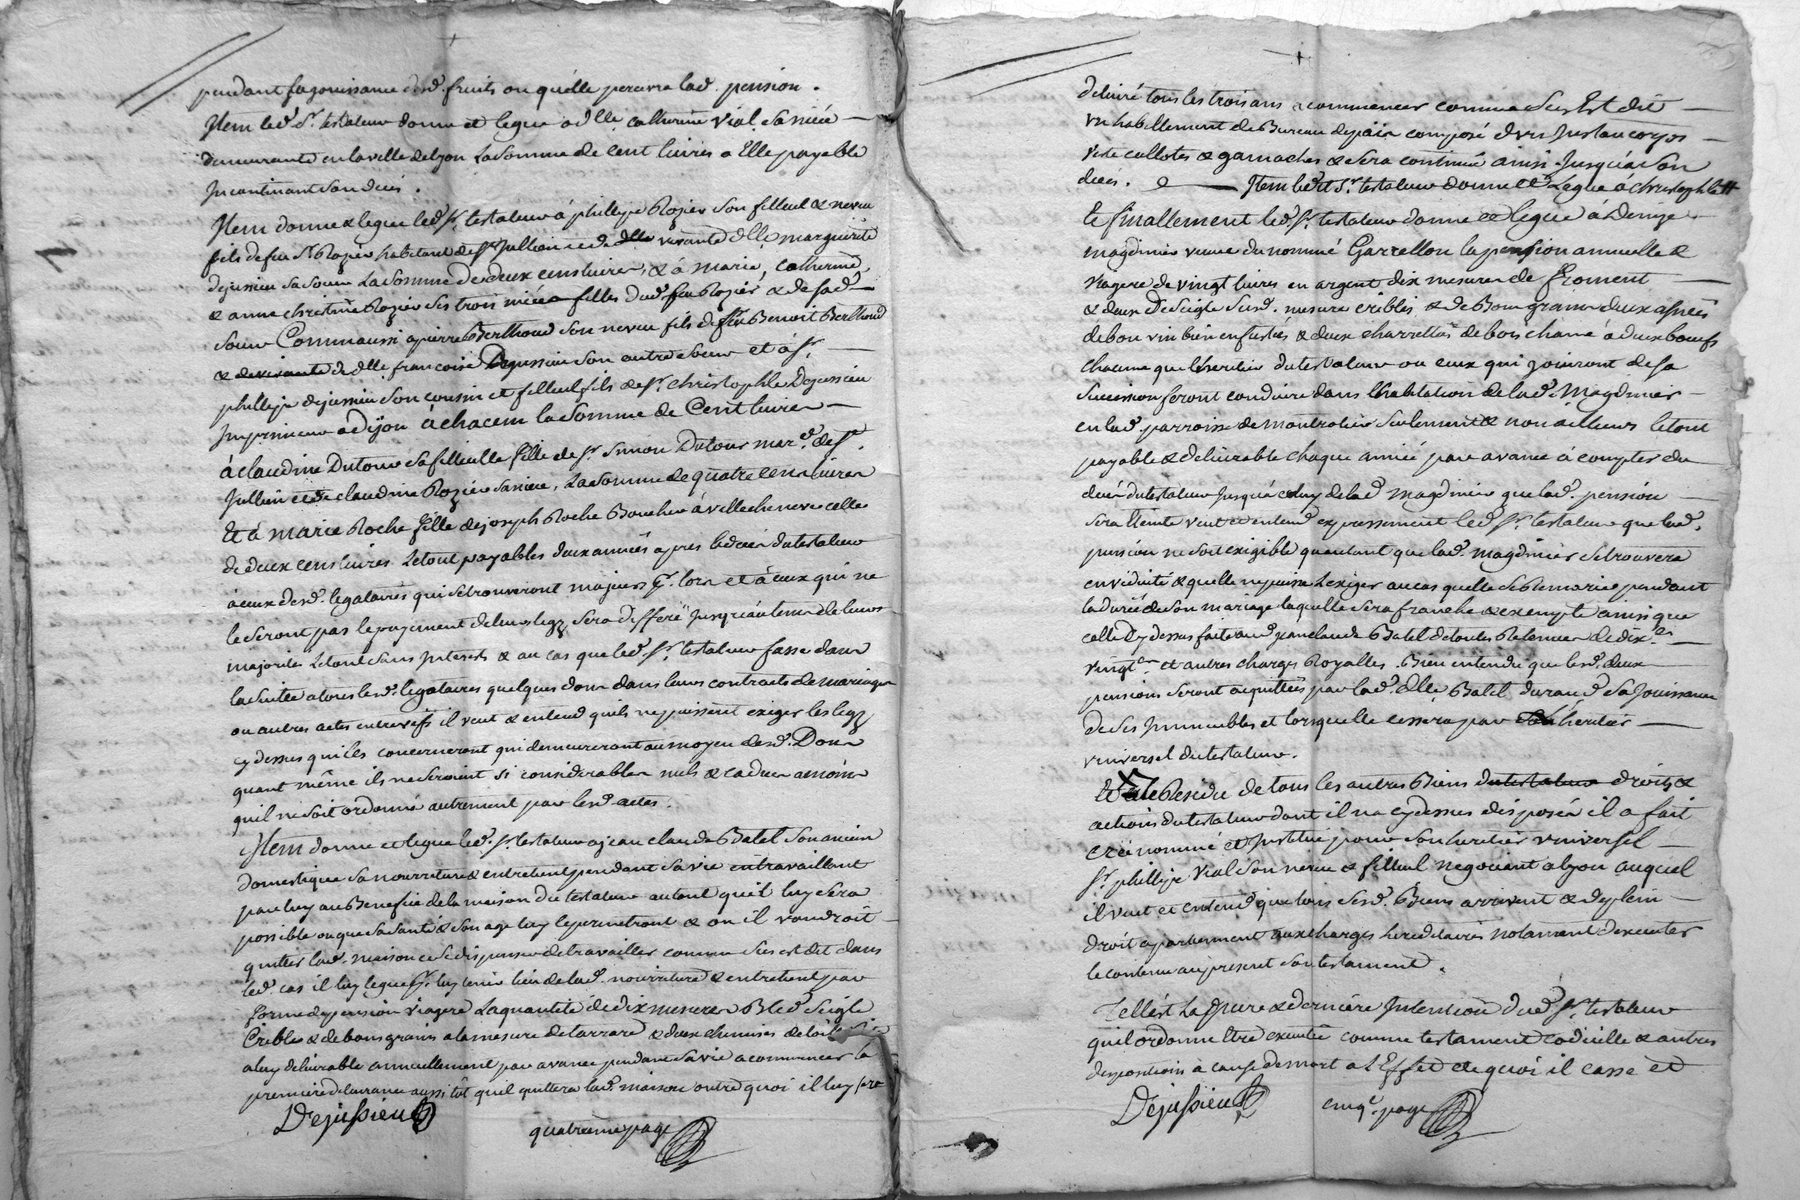 pendant sa jouissance desd. fruits ou quelle percevra lad. pension.
Item led. Sr. testateur donne et legue a dlle catherine vial sa niéce
demeurante en la ville de lyon la somme de cent livres a Elle payable
Incontinant son deces.
Item donne & legue led. Sr. testateur á phillipe Rozier son filleul & neveu
fils de feu Sr. Rozier habitant de St. Jullien et de vivante dlle marguerite
dejussieu sa soeur la somme de deux cens livres, & á marie, catherine
& anne christine Rozier ses trois niéces filles dud. feu Rozier & de sad.
soeur Comm'aussi a pierre Berthoud son neveu fils de feu Benoit Berthoud
& de vivante de dlle francoise Dejussieu son autre soeur et a Sr.
phillipe dejussieu son cousin et filleul fils de Sr. christophle Dejussieu
Imprimeur a Dijon á chacun la somme de Cent livres
á claudine Dutour sa filleulle fille de Sr. Simon Dutour mard. de St.
Jullien et de claudine Rozier sa niéce, la somme de quatre cens livres
Et á marie Roche fille de joseph Roche Boucher á villecheneve celle
de deux cens livres le tout payables deux années apres le decés du testateur
á ceux desd. legataires qui se trouveront majeurs pr. lors et á ceux qui ne
le seront pas le payement de leurs legz sera differé jusques au tems de leurs
majorités le tout sans interets & au cas que led. Sr. testateur fasse dans
la suitte a tous lesd. legataires quelques dons dans leurs contracts de mariage
ou autres actes entrevifs il veut & entend quils ne puissent exiger les legz
cy dessus qui les concerneront qui demeureront au moyen desd. Dons
quant même ils ne seroient si considerables nuls & caducs a moins
quil ne soit ordonné autrement par lesd. actes.
Item donne et legue led. Sr. testateur a jean claude Batel son ancien
domestique sa nourriture & entretient pendant sa vie en travaillant
par luy au Benefice de la maison du testateur autant qu'il luy sera
possible ou que sa santé & son age luy le permetront & ou il voudroit
quitter lad. maison et se dispenser de travailler comme sus est dit dans
led. cas il luy legue pr. luy tenir lieu de lad. nourriture & entretient par
forme de pension viagere la quantité de dix mesures Bled Seigle
Cribles & de bons grains a la mesure de tarrare & deux chemises de toile
a luy delivrable annuellement par avance pendant sa vie a commencer la
premiere delivrance aussi tôt quil quittera lad. maison outre quoi il luy sera
Dejussieu
quatrieme page
delivré tous les trois ans a commencer comme sus Est dit
un habillement de Bureau de païs composé d'un Justaucorps
veste cullotes & gamaches & sera continué ainsi Jusqu'a son
deces. Item led. Sr. testateur donne & legue á christophle #
Et finallement led. Sr. testateur donne & legue á Denize
magdinier veuve du nommé Garrellon la pension annuelle &
viagere de vingt livres en argent dix mesures de froment
& deux De seigle susd. mesure criblés & de Bons grains deux asnées
de bon vin bien enfustées & deux charrettées de bois chane á deux boeufs
chacune que l'heritier du testateur ou ceux qui joüiront de sa
succession seront conduire dans l'habitation de lad. Magdinier
en lad. parroisse de montrotier seulement & non ailleurs le tout
payable & delivrable chaque année par avance á compter du
decés du testateur Jusqu'á celuy de lad. magdinier que lad. pension
sera Eteinte veut et entend expressement led. Sr. testateur que lad.
pension ne soit exigible qu'autant que lad. magdinier se trouvera
en viduité & quelle ne puisse l'exiger au cas quelle se remarie pendant
la durée de son mariage laquelle sera franche & exempte ainsi que
celle cy dessus faite aud. jean claude Batel de toutes Retenues de dix.es
vingt.es et autres charges Royalles. Bien entendu que lesd. deux
pensions seront aquittées par lad. dlle Batel durant sa Jouissance
de ses Immeubles et lorsquelle cessera par l'heritier
universel du testateur.
Et Le Residu de tous les autres Biens du testateur droits &
actions du testateur dont il n'a cy dessus disposé il a fait
créé nommé et Institué pour son heritier universel
Sr. phillipe Vial son neveu & filleul negociant a lyon auquel
il veut et entend que tous sesd. Biens arrivent & de plein
droit apartiennent aux charges hereditaires notament d'executer
le contenu au present son testament.
Telle est la pure & derniére Intention dud. Sr. testateur
quil ordonne Etre executée comme testament codicille & autres
dispositions á cause de mort a L'Effet de quoi il casse et
Dejussieu
cinqe. page